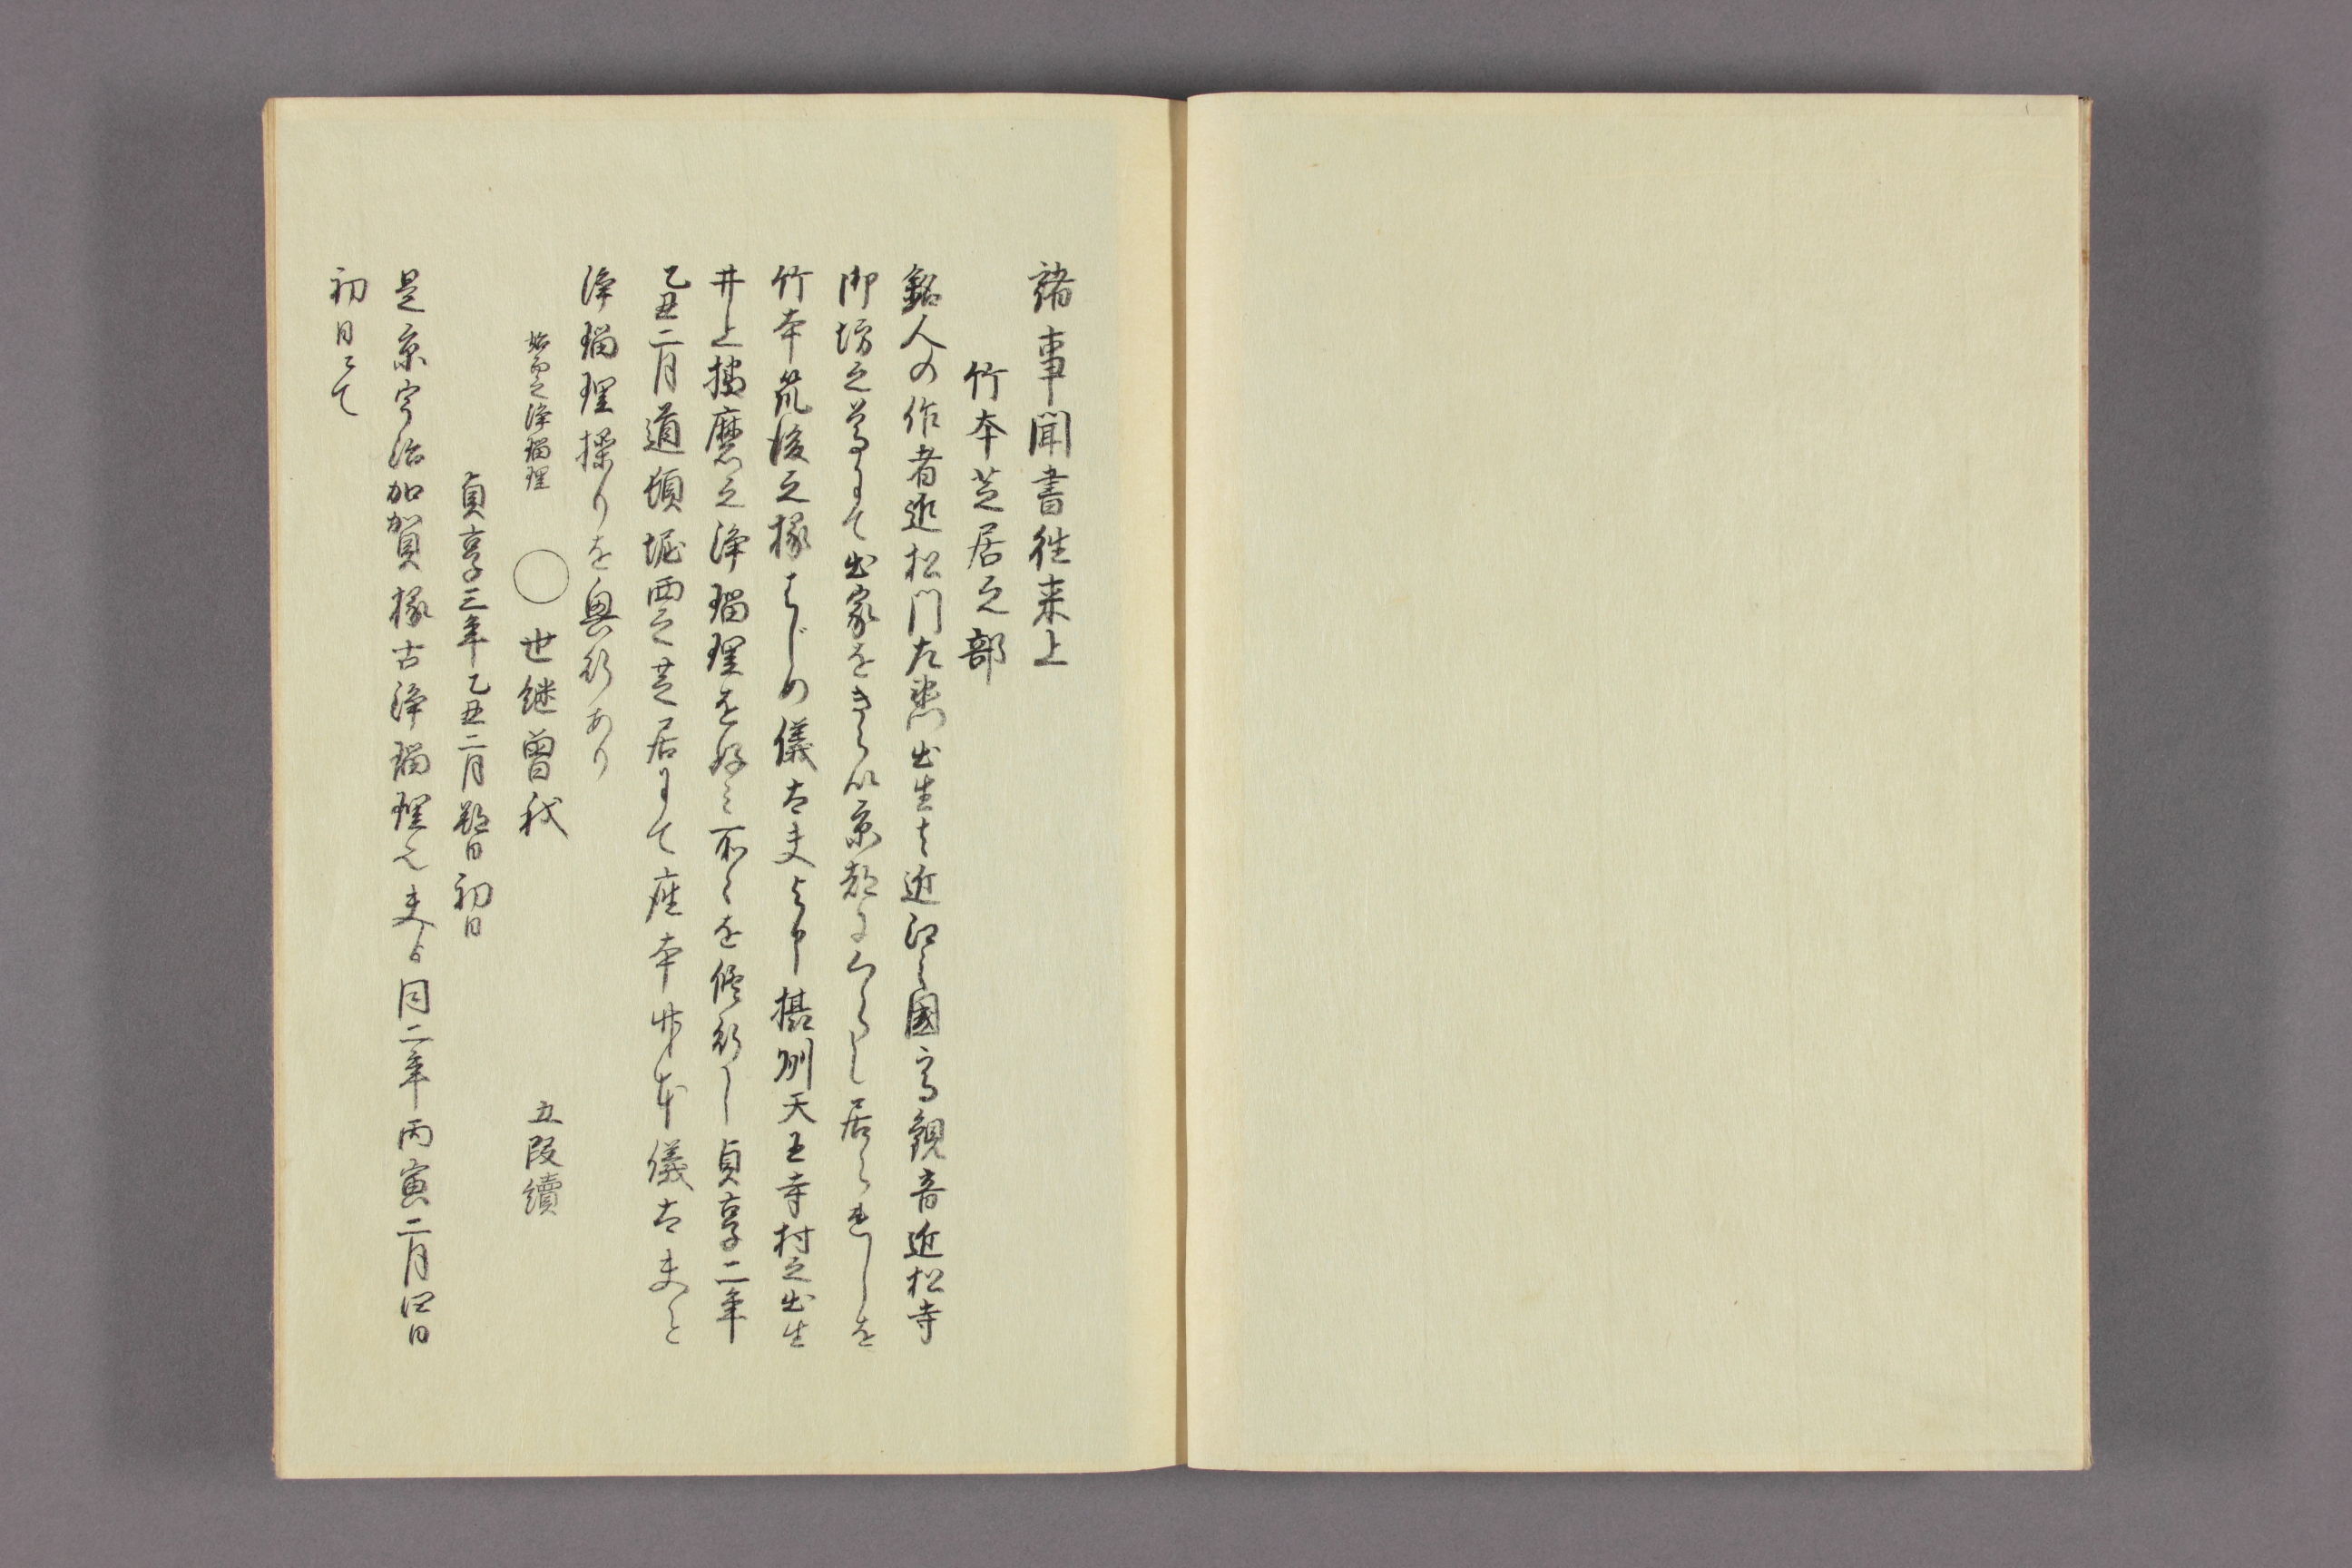 諸事聞書往来上
竹本芝居之部
銘人の作者近松門左衛門出生は近江之國高観音近松寺
御坊之等にて出家をきらい京都にくらし居られしを
竹本筑後之掾はじめ儀太夫と申摂州天王寺村之出生
井上播磨之浄瑠理を好ミ所々を修行し貞享二年
乙丑二月道頓堀西之芝居にて座本竹本儀太夫と
浄瑠理操りを興行あり
始而之浄瑠理 ○世継曽我 五段續
貞享三年乙丑二月朔日初日
是京宇治加賀掾古浄瑠理也夫ゟ同二年丙寅二月四日
初日ニて